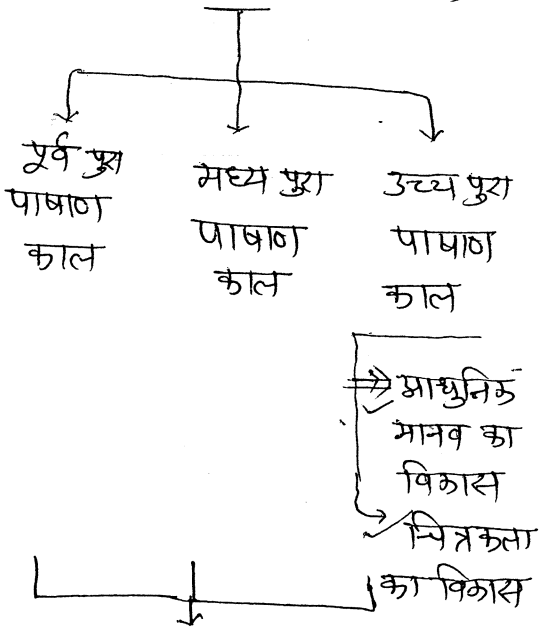 पूर्व पुरा
पाषाण
काल
मध्य पुरा
पाषाण
काल
उच्च पुरा
पाषाण
काल
आधुनिक
मानव का
विकास
चित्रकला
का विकास